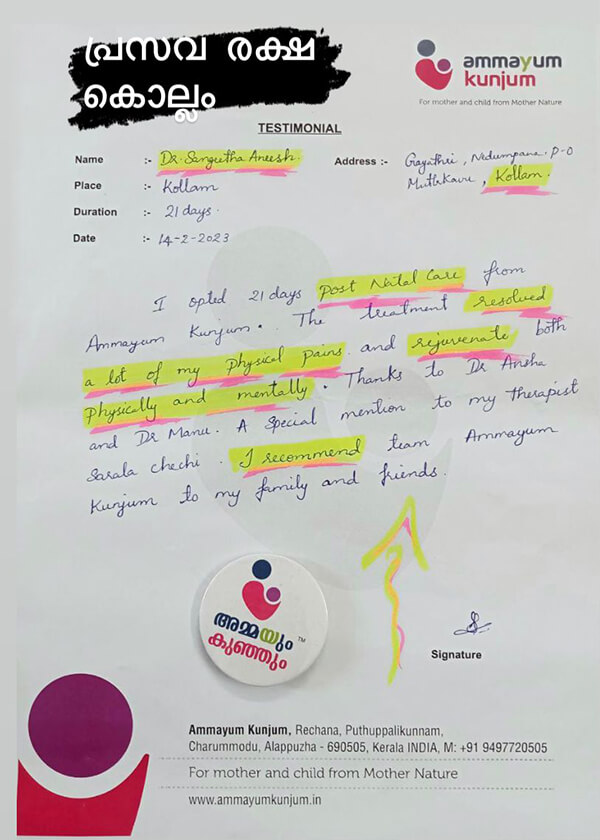 പ്രസവ രക്ഷ
കൊല്ലം
ammayum
kunjum
For mother and child from Mother Nature
TESTIMONIAL
Name :- Dr. Sangutha Aneesh.
Place :- Kollam
Duration :- 21 days.
Date :- 14-2-2023
Address :- Gayathri, Nedumpana. P-O
Muttakavu, Kollam.
I opted 21 days Post Natal Care from
Ammayum Kunjum. The treatment resolved
a lot of my physical pains. and rejuvenate both
physically and mentally. Thanks to Dr Aneha
and Dr Manu. A special mention to my therapist
Sarala chechi. I recommend team Ammayum
Kunjum to my family and friends.
അമ്മയും TM
കുഞ്ഞും
Signature
Ammayum Kunjum, Rechana, Puthuppalikunnam,
Charummodu, Alappuzha - 690505, Kerala INDIA, M: +91 9497720505
For mother and child from Mother Nature
www.ammayumkunjum.in